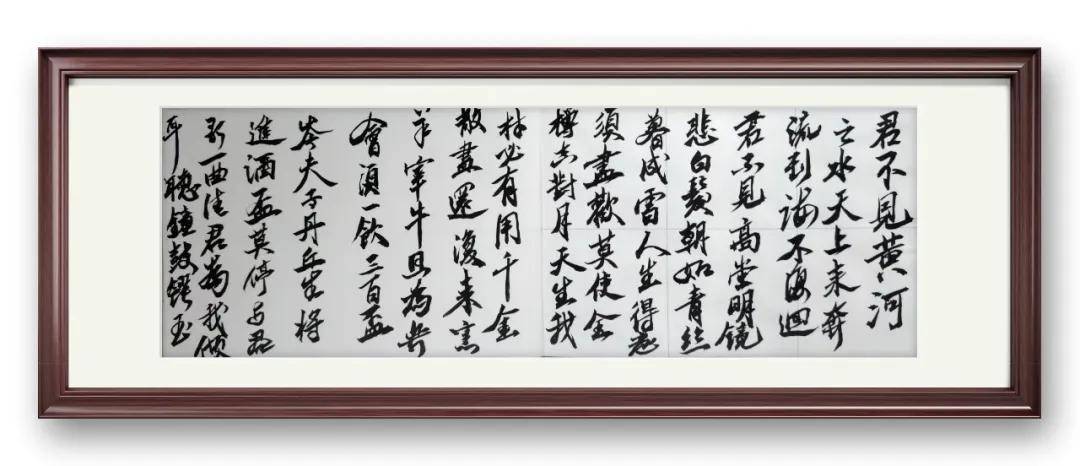 君不見黄河
之水天上来奔
流到海不復迴
君不見高堂明镜
悲白髮朝如青丝
暮成雪人生得意
須盡歡莫使金
樽空對月天生我
材必有用千金
散盡還復来烹
羊宰牛且為樂
會須一飲三百盃
岑夫子丹丘生将
進酒盃莫停与君
歌一曲请君為我倾
耳聴鐘鼓饌玉